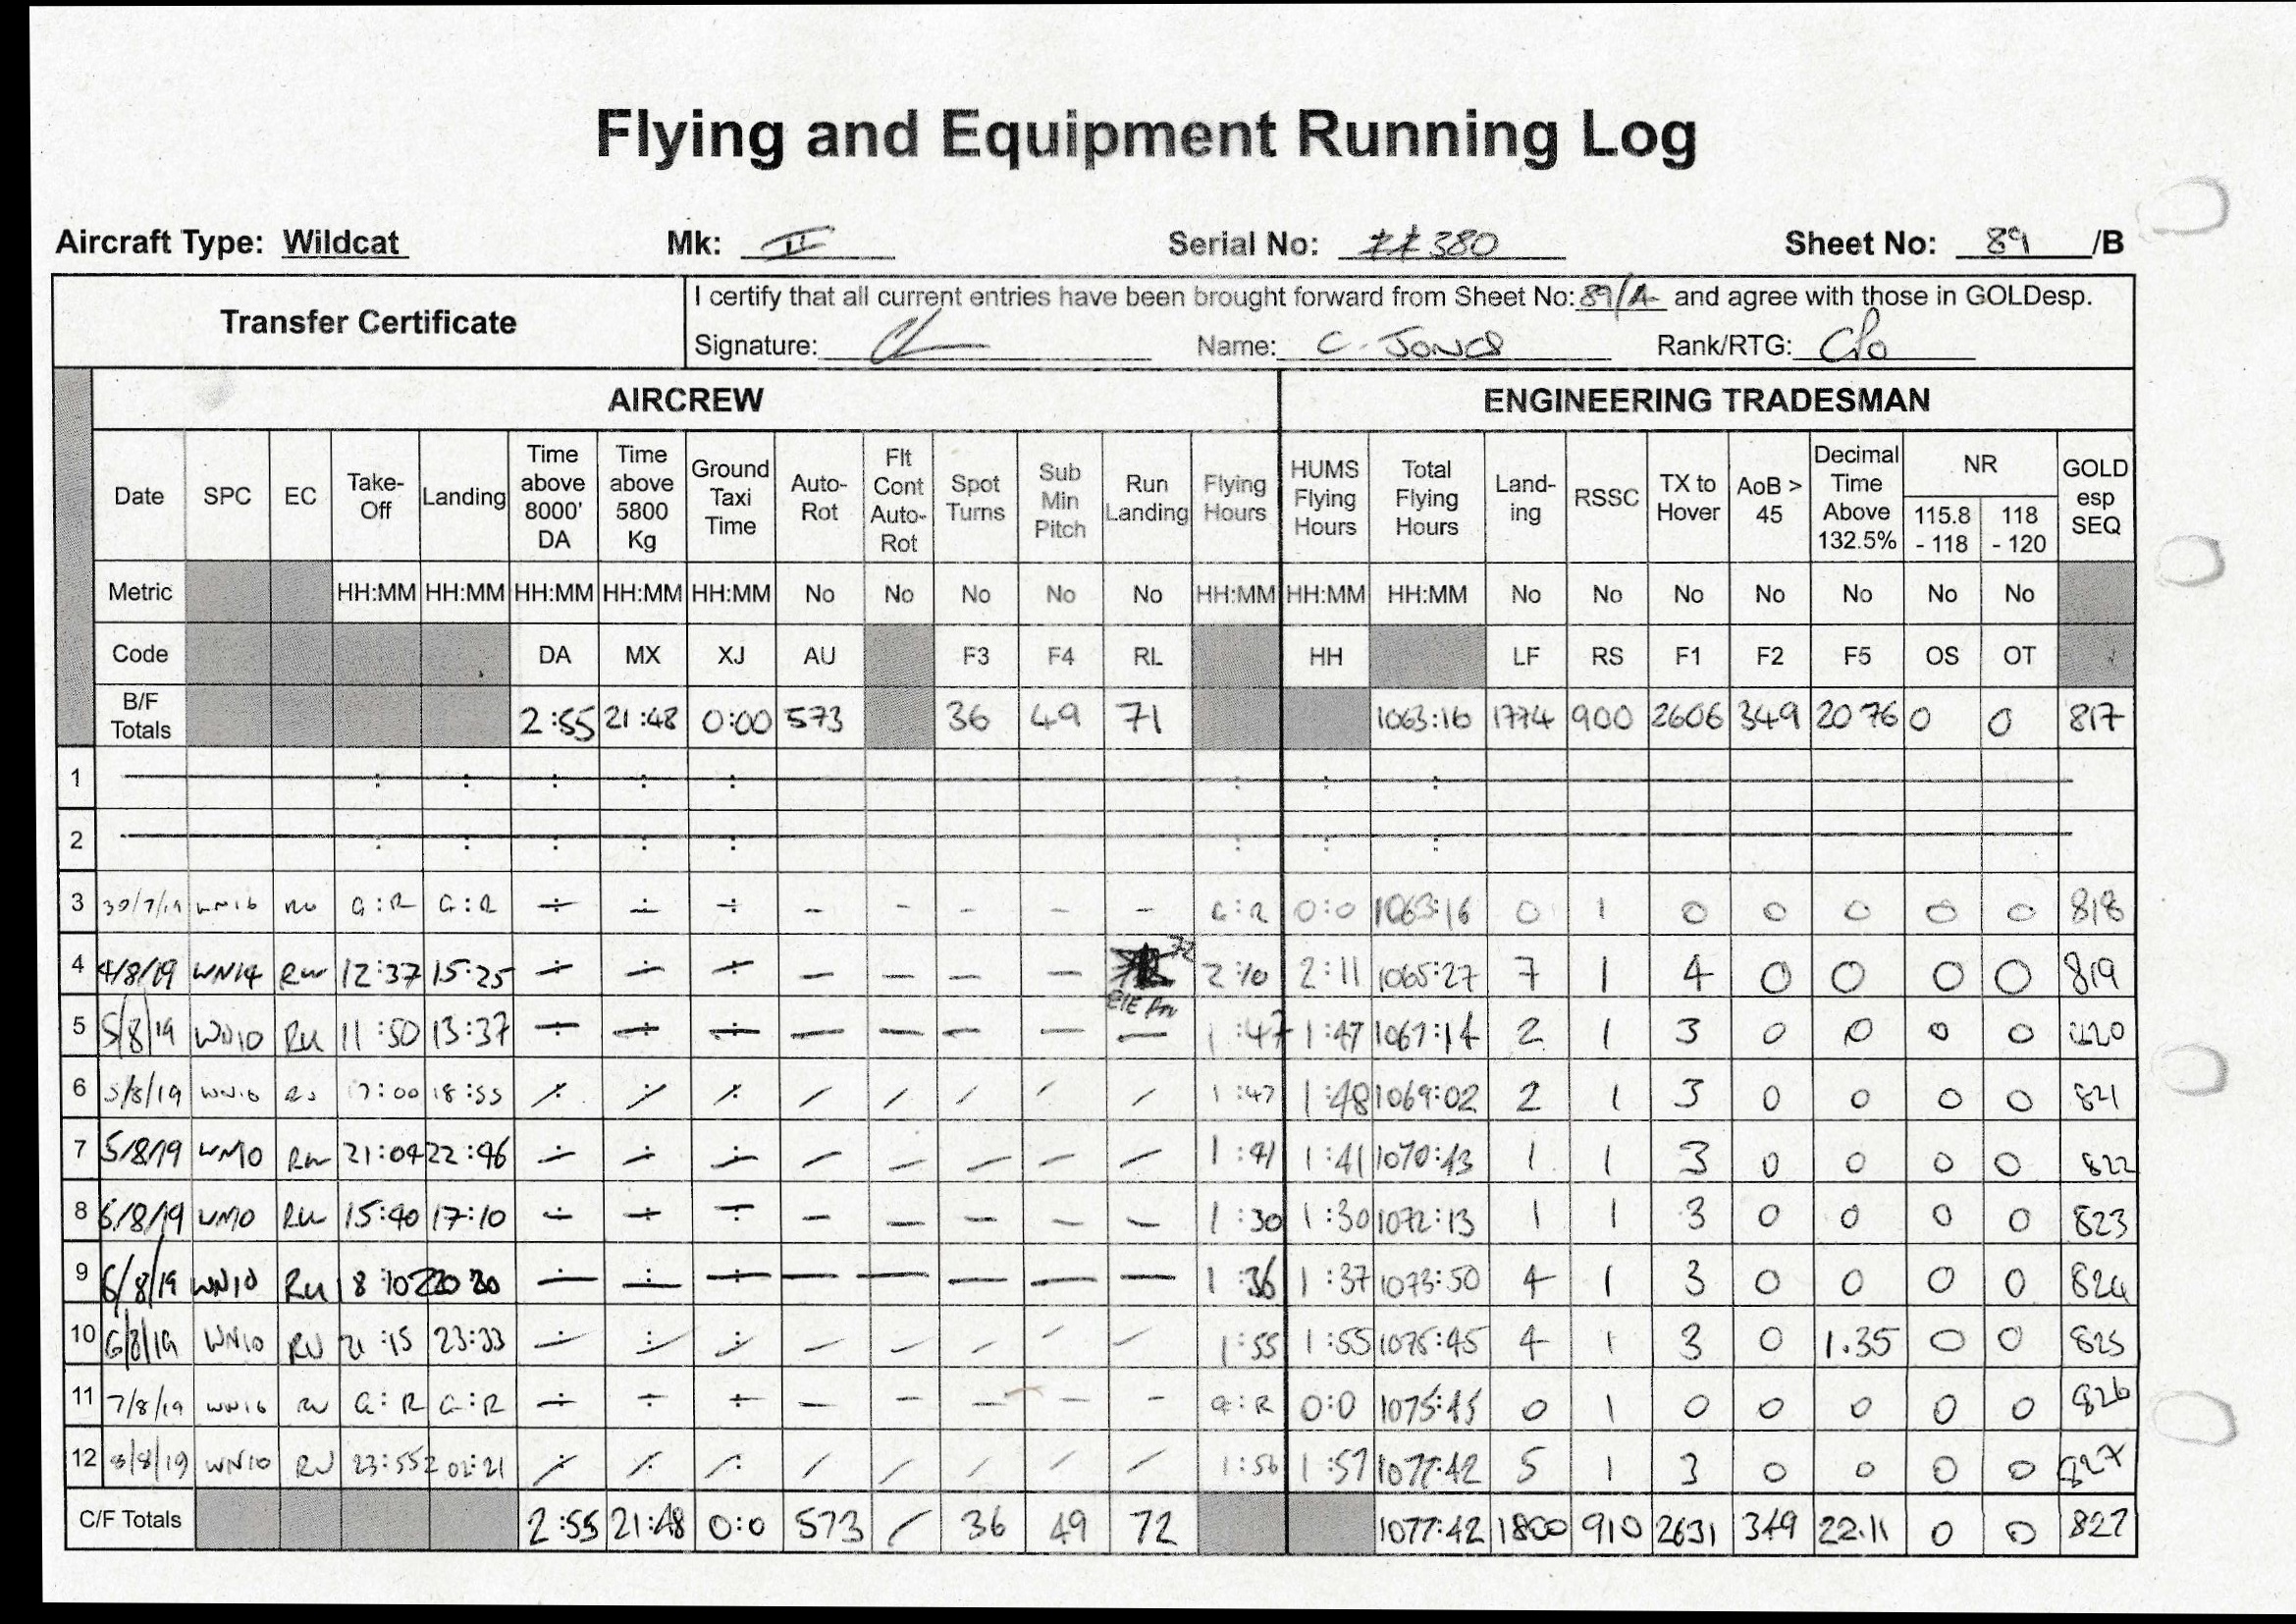 Flying and Equipment Running Log
Aircraft Type: Wildcat Mk: II Serial No: ZZ380 Sheet No: 89 /B
Transfer Certificate
I certify that all current entries have been brought forward from Sheet No: 89/A and agree with those in GOLDesp.
Signature: Name: C. Jones Rank/RTG: CPO
AIRCREW ENGINEERING TRADESMAN
Date SPC EC Take-Off Landing Time above 8000' DA Time above 5800 Kg Ground Taxi Time Auto-Rot Flt Cont Auto-Rot Spot Turns Sub Min Pitch Run Landing Flying Hours HUMS Flying Hours Total Flying Hours Land-ing RSSC TX to Hover AoB > 45 Decimal Time Above 132.5% NR 115.8 - 118 118 - 120 GOLD esp SEQ
Metric HH:MM HH:MM HH:MM HH:MM HH:MM No No No No No HH:MM HH:MM HH:MM No No No No No No No
Code DA MX XJ AU F3 F4 RL HH LF RS F1 F2 F5 OS OT
B/F Totals 2:55 21:48 0:00 573 36 49 71 1063:16 1774 900 2606 349 20 76 0 0 817
1 : : : : : : : :
2 : : : : : : : :
3 30/7/19 WN10 RU G:R G:R - - - - - - - - G:R 0:0 1063:16 0 1 0 0 0 0 0 818
4 4/8/19 WN14 RW 12:37 15:25 - - - - - - - 72 2:10 2:11 1065:27 7 1 4 0 0 0 0 819
5 5/8/19 WN10 RU 11:50 13:37 - - - - - - - - 1:47 1:47 1067:14 2 1 3 0 0 0 0 820
6 5/8/19 WN10 RU 17:00 18:55 / / / / / / / / 1:47 1:48 1069:02 2 1 3 0 0 0 0 821
7 5/8/19 WN10 RW 21:04 22:46 - - - - - - - - 1:41 1:41 1070:43 1 1 3 0 0 0 0 822
8 6/8/19 WN10 RU 15:40 17:10 - - - - - - - - 1:30 1:30 1072:13 1 1 3 0 0 0 0 823
9 6/8/19 WN10 RU 18:10 - - - - - - - - 1:36 1:37 1073:50 4 1 3 0 0 0 0 824
10 6/8/19 WN10 RU 21:15 23:33 - - - - - - - - 1:55 1:55 1075:45 4 1 3 0 1.35 0 0 825
11 7/8/19 WN10 RU G:R G:R - - - - - - - - G:R 0:0 1075:45 0 1 0 0 0 0 0 826
12 8/8/19 WN10 RU 23:55 02:21 / / / / / / / / 1:56 1:57 1077:42 5 1 3 0 0 0 0 827
C/F Totals 2:55 21:48 0:0 573 / 36 49 72 1077:42 1800 910 2631 349 22.11 0 0 827